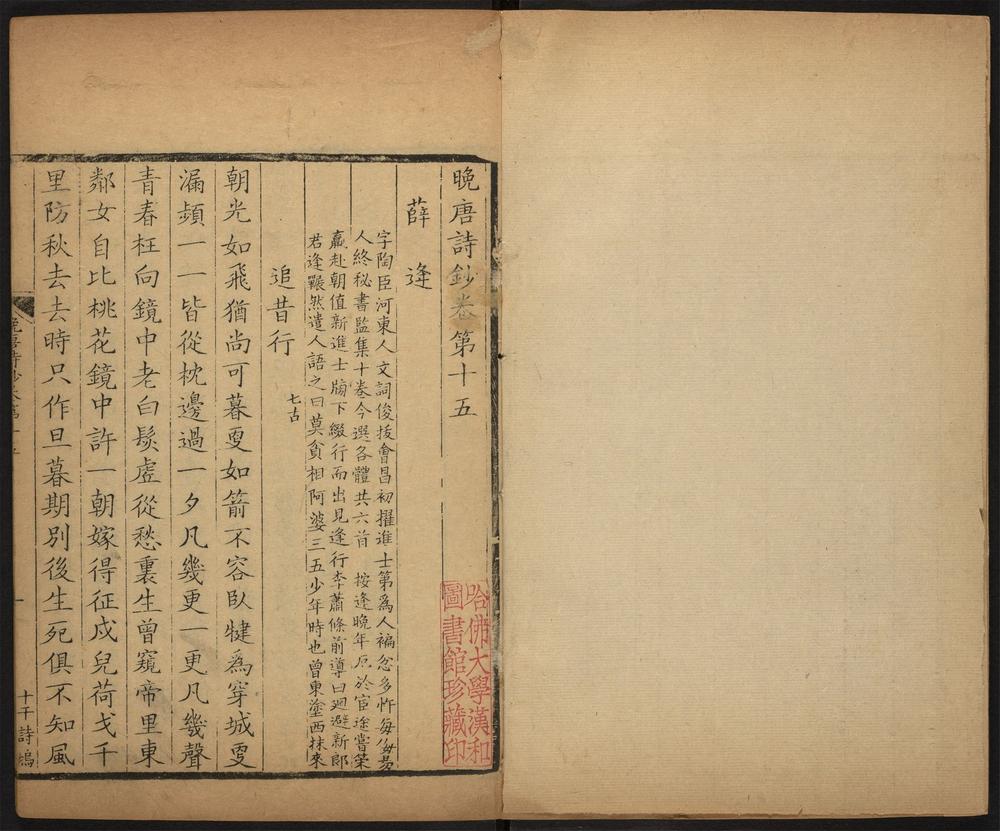 晚唐詩鈔卷第十五
薛逢
字陶臣河東人文詞俊拔會昌初擢進士第爲人褊忿多忤每侮易
人終秘書監集十卷今選各體共六首 按逢晚年厄於宦途嘗策
羸赴朝值新進士牓下綴行而出見逢行李蕭條前導曰廻避新郎
君逢囅然遣人語之曰莫貪相阿婆三五少年時也曾東塗西抹來
追昔行 七古
朝光如飛猶尚可暮更如箭不容臥犍爲穿城更
漏頻一一皆從枕邊過一夕凡幾更一更凡幾聲
青春枉向鏡中老白髮虛從愁裏生曾窺帝里東
鄰女自比桃花鏡中許一朝嫁得征戍兒荷戈千
里防秋去去時只作旦暮期別後生死俱不知風
晚唐詩鈔
一
十千詩塢
哈佛大學漢和
圖書館珍藏印